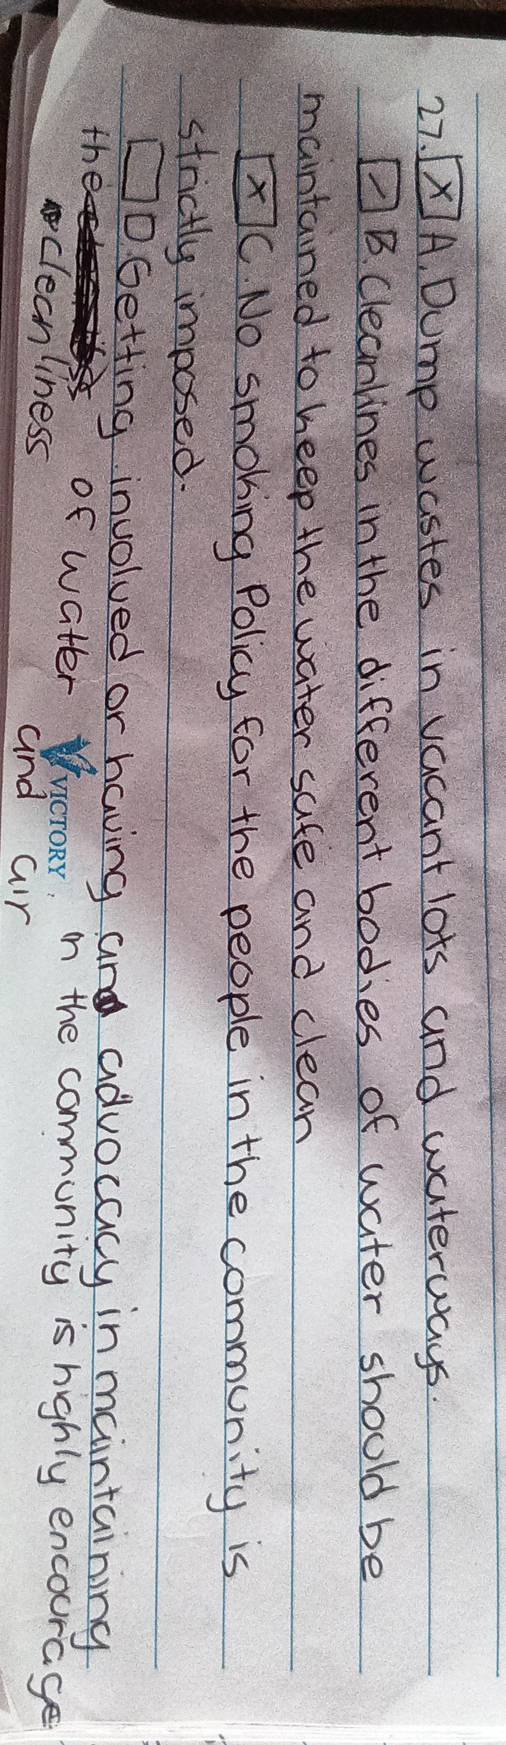 27. [x] A. Dump wastes in vacant lots and waterways.
[✓] B. Cleanlines in the different bodies of water should be
maintained to keep the water safe and clean
[x] C. No smoking Policy for the people in the community is
strictly imposed.
[ ] D. Getting involved or having an advocacy in maintaining
the of water in the community is highly encourage
cleanliness and air
VICTORY